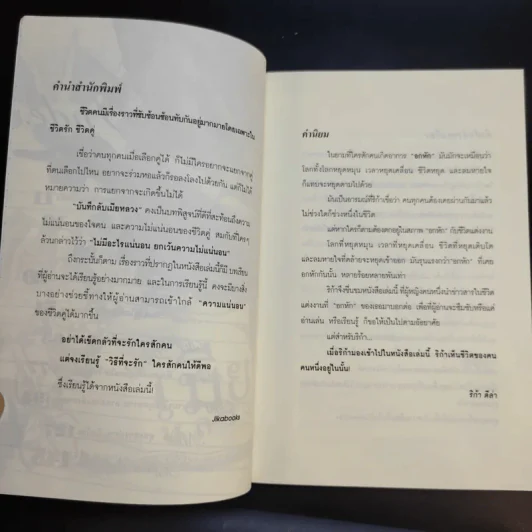 คำนำสำนักพิมพ์
ชีวิตคนมีเรื่องราวที่ซับซ้อนซ้อนทับกันอยู่มากมายโดยเฉพาะใน
ชีวิตรัก ชีวิตคู่
เชื่อว่าคนทุกคนเมื่อเลือกคู่ได้ ก็ไม่มีใครอยากจะแยกจากคู่
ที่คนเลือกไปไหน อยากจะร่วมหอแล้วก็รอลงโลงไปด้วยกัน แต่ก็ไม่ได้
หมายความว่า การแยกจากจะเกิดขึ้นไม่ได้
"บันทึกลับเมียหลวง" คงเป็นบทพิสูจน์ที่ดีที่สะท้อนถึงความ
ไม่แน่นอนของใจคน และความไม่แน่นอนของชีวิตคู่ สมกับที่ใครๆ
ล้วนกล่าวไว้ว่า "ไม่มีอะไรแน่นอน ยกเว้นความไม่แน่นอน"
ถึงกระนั้นก็ตาม เรื่องราวที่ปรากฏในหนังสือเล่มนี้ก็มี บทเรียน
ที่ผู้อ่านจะได้เรียนรู้อย่างมากมาย และในการเรียนรู้นี้ คงจะมีบางสิ่ง
บางอย่างช่วยชี้ทางให้ผู้อ่านสามารถเข้าใกล้ "ความแน่นอน"
ของชีวิตคู่ได้มากขึ้น
อย่าได้เข็ดกลัวที่จะรักใครสักคน
แต่จงเรียนรู้ "วิธีที่จะรัก" ใครสักคนให้ดีพอ
ซึ่งเรียนรู้ได้จากหนังสือเล่มนี้!
Jikabooks
คำนิยม
ในยามที่ใครสักคนเกิดอาการ "อกหัก" มันมักจะเหมือนว่า
โลกทั้งโลกหยุดหมุน เวลาหยุดเคลื่อน ชีวิตหยุด และลมหายใจ
ก็แทบจะหยุดตามไปด้วย
มันเป็นอารมณ์ที่ริก้าเชื่อว่า คนทุกคนต้องเคยผ่านกันมาแล้ว
ไม่ช่วงใดก็ช่วงหนึ่งในชีวิต
แต่หากใครก็ตามต้องตกอยู่ในสภาพ "อกหัก" กับชีวิตแต่งงาน
โลกที่หยุดหมุน เวลาที่หยุดเคลื่อน ชีวิตที่หยุดเติบโต
และลมหายใจที่คล้ายจะหยุดเข้าออก มันรุนแรงกว่า "อกหัก" ที่เคย
อกหักกันนั้น หลายร้อยหลายพันเท่า
ริก้าจึงชื่นชมหนังสือเล่มนี้ ที่ผู้หญิงคนหนึ่งนำข่าวสารในชีวิต
แต่งงานที่ "อกหัก" ของเธอมาบอกต่อ เพื่อที่ผู้อ่านจะซึมซับหรือแค่
อ่านเล่น หรือเรียนรู้ ก็ขอให้เป็นไปตามอัธยาศัย
แต่สำหรับริก้า...
เมื่อริก้ามองเข้าไปในหนังสือเล่มนี้ ริก้าเห็นชีวิตของคน
คนหนึ่งอยู่ในนั้น!
ริก้า ดีล่า